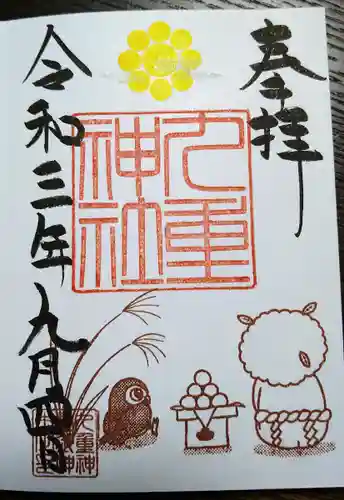 奉拝
九重
神社
令和三年九月四日
九重神